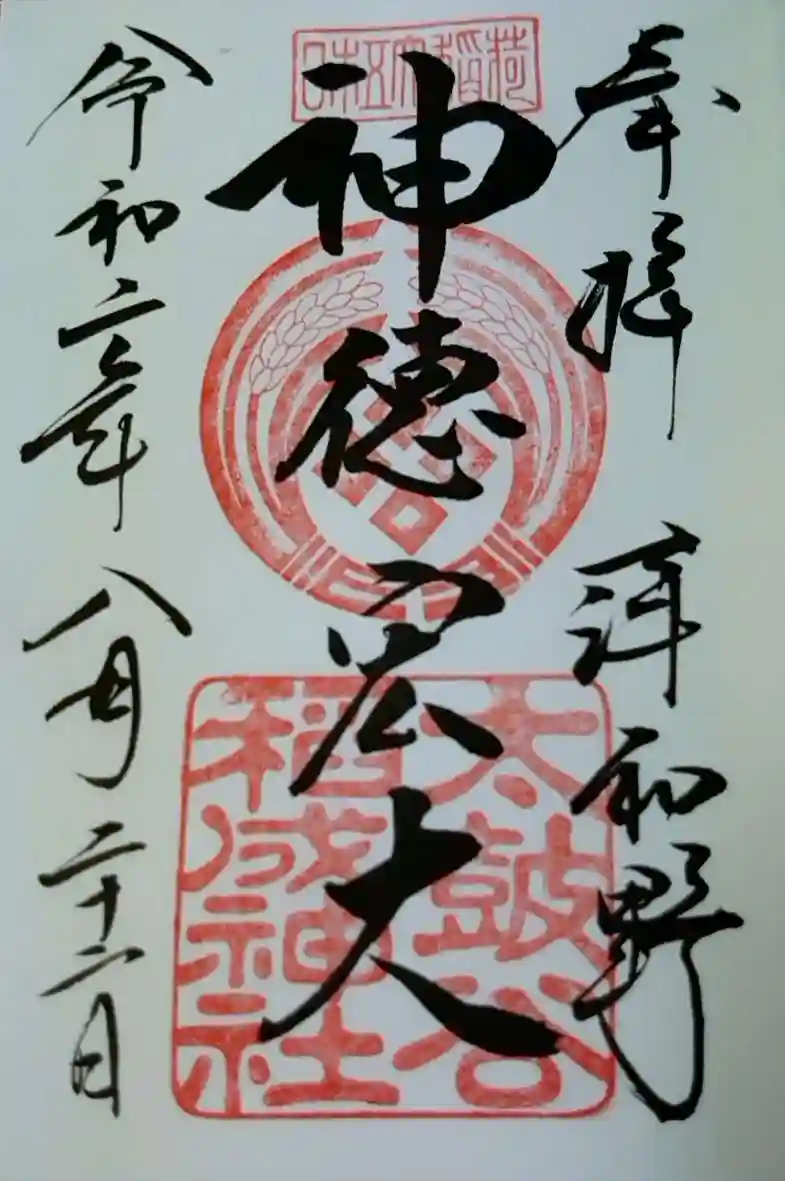 奉拝 津和野
日本五大稲荷
神徳宏大
太鼓谷
稲成神社
令和六年八月二十二日